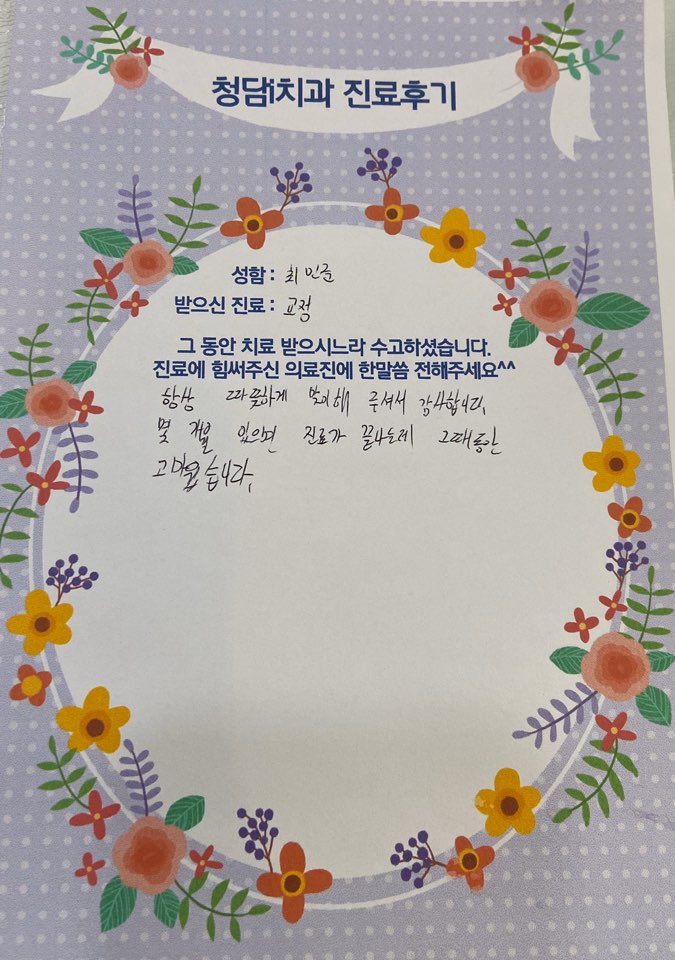 청담i치과 진료후기
성함 : 최민준
받으신 진료 : 교정
그 동안 치료 받으시느라 수고하셨습니다.
진료에 힘써주신 의료진에 한말씀 전해주세요^^
항상 따뜻하게 맞이해 주셔서 감사합니다.
몇 개월 있으면 진료가 끝나는데 그때동안
고마웠습니다.